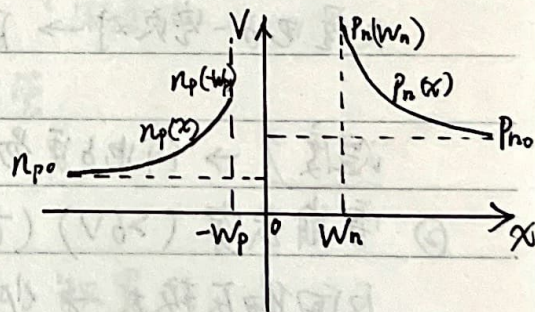 V
Pn(Wn)
np(-Wp)
Pn(x)
np(x)
Pno
npo
-Wp
0
Wn
x